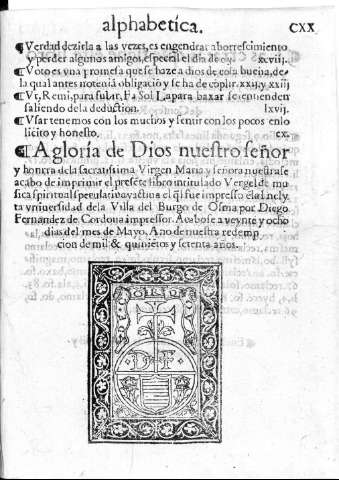 alphabetica. CXX
¶Verdad dezirla a las vezes, es engendrar aborrescimiento
y perder algunos amigos, especial el dia de oy. xcviij.
¶Voto es vna promesa que se haze a dios de cosa buena, de-
la qual antes no tenia obligaciō y se ha de cōplir. xxij. y xxiij
¶Vt, Remi, para subir, Fa Sol La para baxar se entienden
saliendo de la deduction. lxvij.
¶Vsar tenemos con los muchos y sentir con los pocos en lo
licito y honesto. cx.
¶A gloria de Dios nuestro señor
y honrra dela sacratissima Virgen Maria y señora nuestra se
acabo de imprimir el presēte libro intitulado Vergel de mu
sica spiritual speculatiua y actiua el q̄l fue impresso ēla inclyta
ta vniuersidad dela Villa del Burgo de Osma por Diego
Fernandez de Cordoua impressor. Acabose a veynte y ocho
dias del mes de Mayo. Año de nuestra redemp
cion de mil & quiniētos y setenta años.
D F